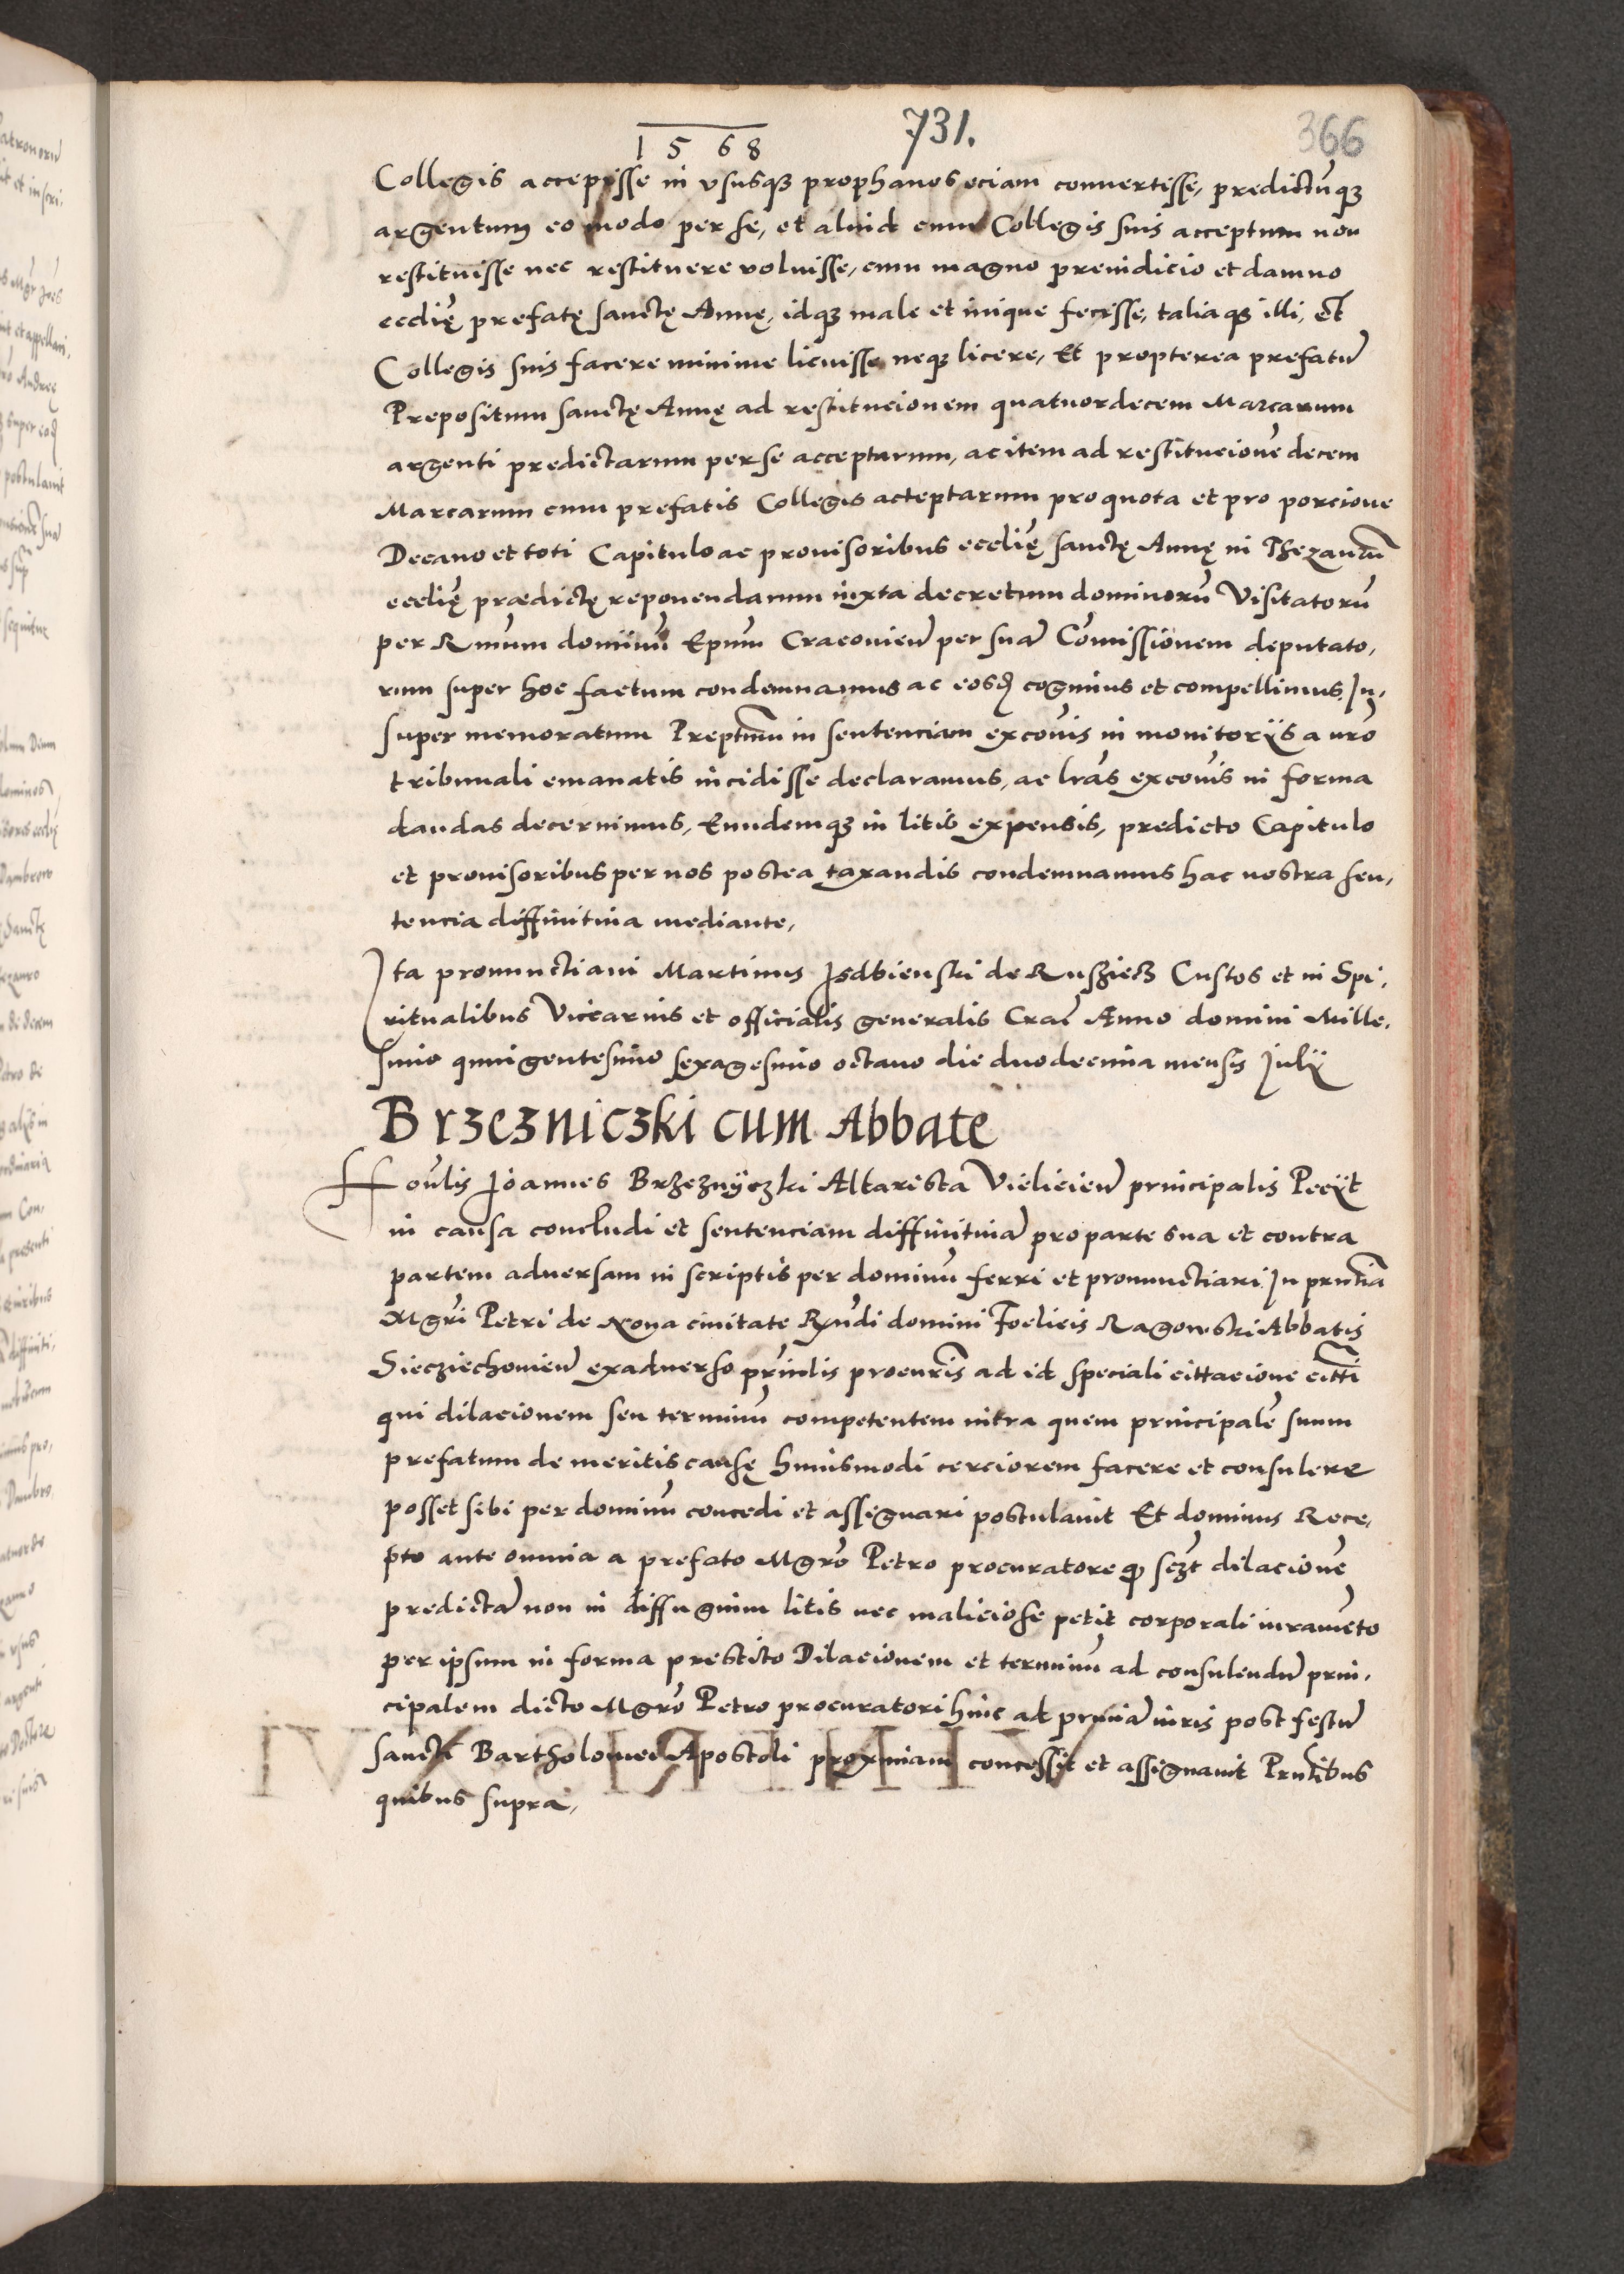 1568 731. 366
Collegis accepisse in vsusqȝ prophanos eciam conuertisse, predictũqȝ
argentum eo modo per se, et aliud cum Collegis suis acceptum non
restituisse nec restituere voluisse, cum magno preiudicio et damno
ecclię prefatę sanctę Annę, idqȝ male et inique fecisse, taliaqȝ illi, et
Collegis suis facere minime licuisse neqȝ licere, Et propterea prefatũ
Prepositum sanctę Annę ad restitucionem quatuordecem Marcarum
argenti predictarum per se acceptarum, ac item ad restitucionẽ decem
Marcarum cum prefatis Collegis acceptarum pro quota et pro porcione
Decano et toti Capitulo ac prouisoribus ecclię sanctę Annę in Thezaurũ
ecclię prædictę reponendarum iuxta decretum dominorũ Visitatorũ
per Rmum dominũ Epum Cracouieñ per suã Cõmissionem deputato,
rum super hoc factum condemnamus ac eosd cogimus et compellimus, In,
super memoratum Preptum in sentenciam excõis in monitorijs a nrõ
tribunali emanatis incidisse declaramus, ac lrãs excõis in forma
dandas decernimus, Eundemqȝ in litis expensis, predicto Capitulo
et prouisoribus per nos postea taxandis condemnamus hac nostra sen,
tencia diffinitiua mediante,
Ita pronunctiaui Martinus Isdbienski de Rusziecz Custos et in Spi,
ritualibus Viccarius et officialis generalis Crac Anno domini Mille,
simo quingentesimo sexagesimo octauo die duodecima mensis Julij
Brzezniczki cum Abbate
Hoñlis Joannes Brzeznyczki Altarista Vielicieñ principalis Pecijt
in causa concludi et sentenciam diffinitiuã pro parte sua et contra
partem aduersam in scriptis per dominũ ferri et pronunctiari, In pñtia
Mgri Petri de Noua ciuitate Rndi domini Foelicis Ragowski Abbatis
Siecziechouieñ ex aduerso prinlis procuris ad id speciali cittacione citti
qui dilacionem seu terminũ competentem intra quem principalẽ suum
prefatum de meritis causę huiusmodi cerciorem facere et consulere
posset sibi per dominũ concedi et assignari postulauit Et dominus Rece,
pto ante omnia a prefato Mgrõ Petro procuratore qȝ sczt dilacionẽ
predictã non in diffugium litis nec maliciose petit corporali iuramẽto
per ipsum in forma prestito Dilacionem et terminũ ad consulendũ prin,
cipalem dicto Mgrõ Petro procuratori hinc ad primã iuris post festũ
sancti Bartholomei Apostoli proximam concessit et assignauit Prñtibus
quibus supra,